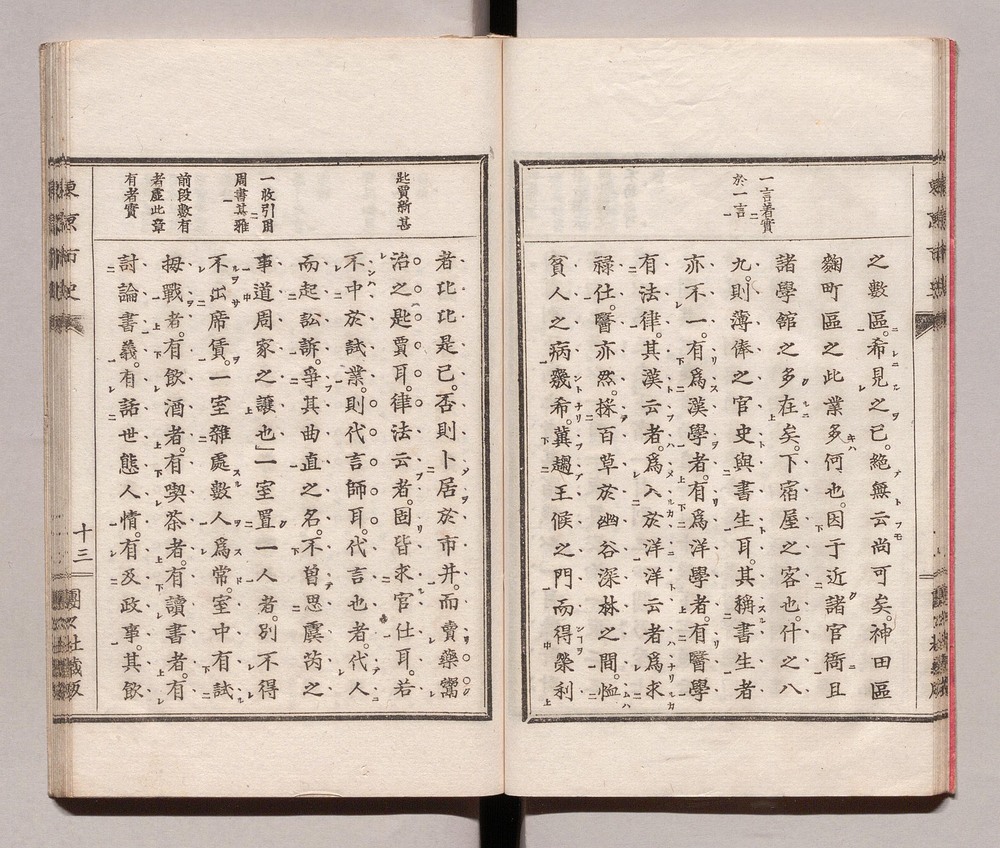 一言着實
於一言
之數區。希見之已。絶無云尚可矣。神田區
麴町區之此業多何也。因于近諸官衙且
諸學館之多在矣。下宿屋之客也。什之八
九。則薄俸之官史與書生耳。其稱書生者
亦不一。有爲漢學者。有爲洋學者。有醫學
有法律。其漢云者。爲入於洋洋云者爲求
祿仕。醫亦然。採百草於幽谷深林之間。恤
貧人之病幾希。冀趨王候之門而得榮利
匙賈新甚
者比比是已。否則卜居於市井。而賣藥鬻
治之匙賈耳。律法云者。固皆求官仕耳。若
不中於試業。則代言師耳。代言也者。代人
而起訟訴。爭其曲直之名。不曾思虞芮之
一收引用
周書甚雅
事道周家之讓也」一室置一人者。別不得
不出席賃。一室雜處數人爲常。室中有試
前段數有
者虛此章
有者實
拇戰者。有飮酒者。有喫茶者。有讀書者。有
討論書義。有話世態人情。有及政事。其飮
東京市史
十三
團々社藏版